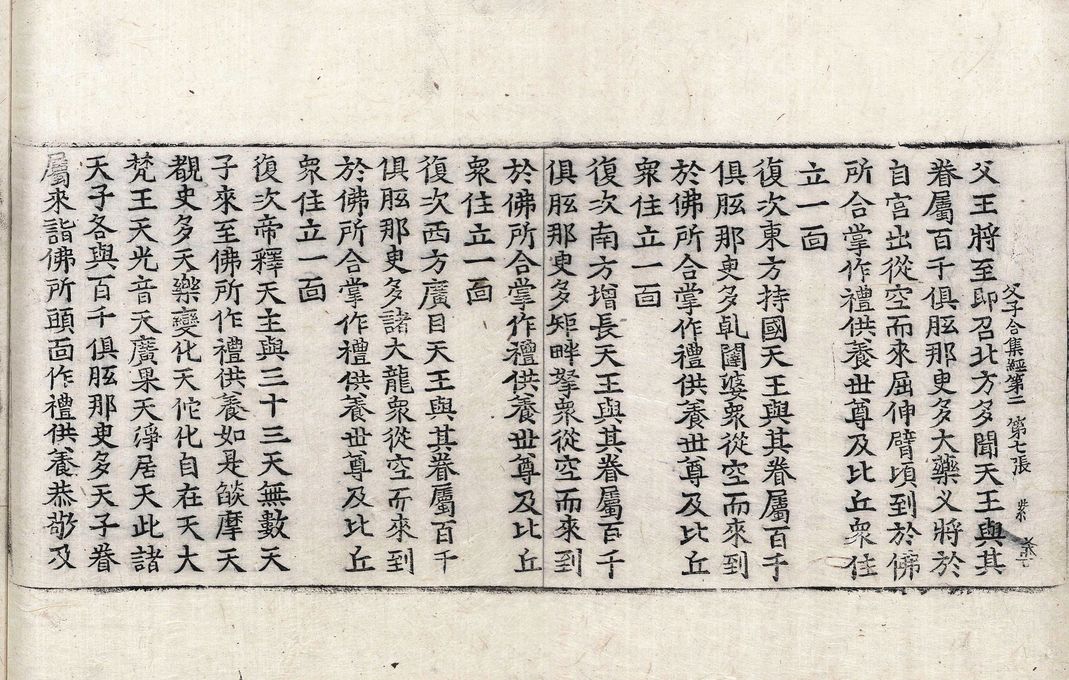 父子合集經第二 第七張 業
父王將至即召北方多聞天王與其
眷屬百千俱胝那庾多大藥叉將於
自宮出從空而來屈伸臂頃到於佛
所合掌作禮供養世尊及比丘衆住
立一面
復次東方持國天王與其眷屬百千
俱胝那庾多乹闥婆衆從空而來到
於佛所合掌作禮供養世尊及比丘
衆住立一面
復次南方增長天王與其眷屬百千
俱胝那庾多矩畔拏衆從空而來到
於佛所合掌作禮供養世尊及比丘
衆住立一面
復次西方廣目天王與其眷屬百千
俱胝那庾多諸大龍衆從空而來到
於佛所合掌作禮供養世尊及比丘
衆住立一面
復次帝釋天主與三十三天無數天
子來至佛所作禮供養如是燄摩天
覩史多天樂變化天佗化自在天大
梵王天光音天廣果天淨居天此諸
天子各與百千俱胝那庾多天子眷
屬來詣佛所頭面作禮供養恭敬及